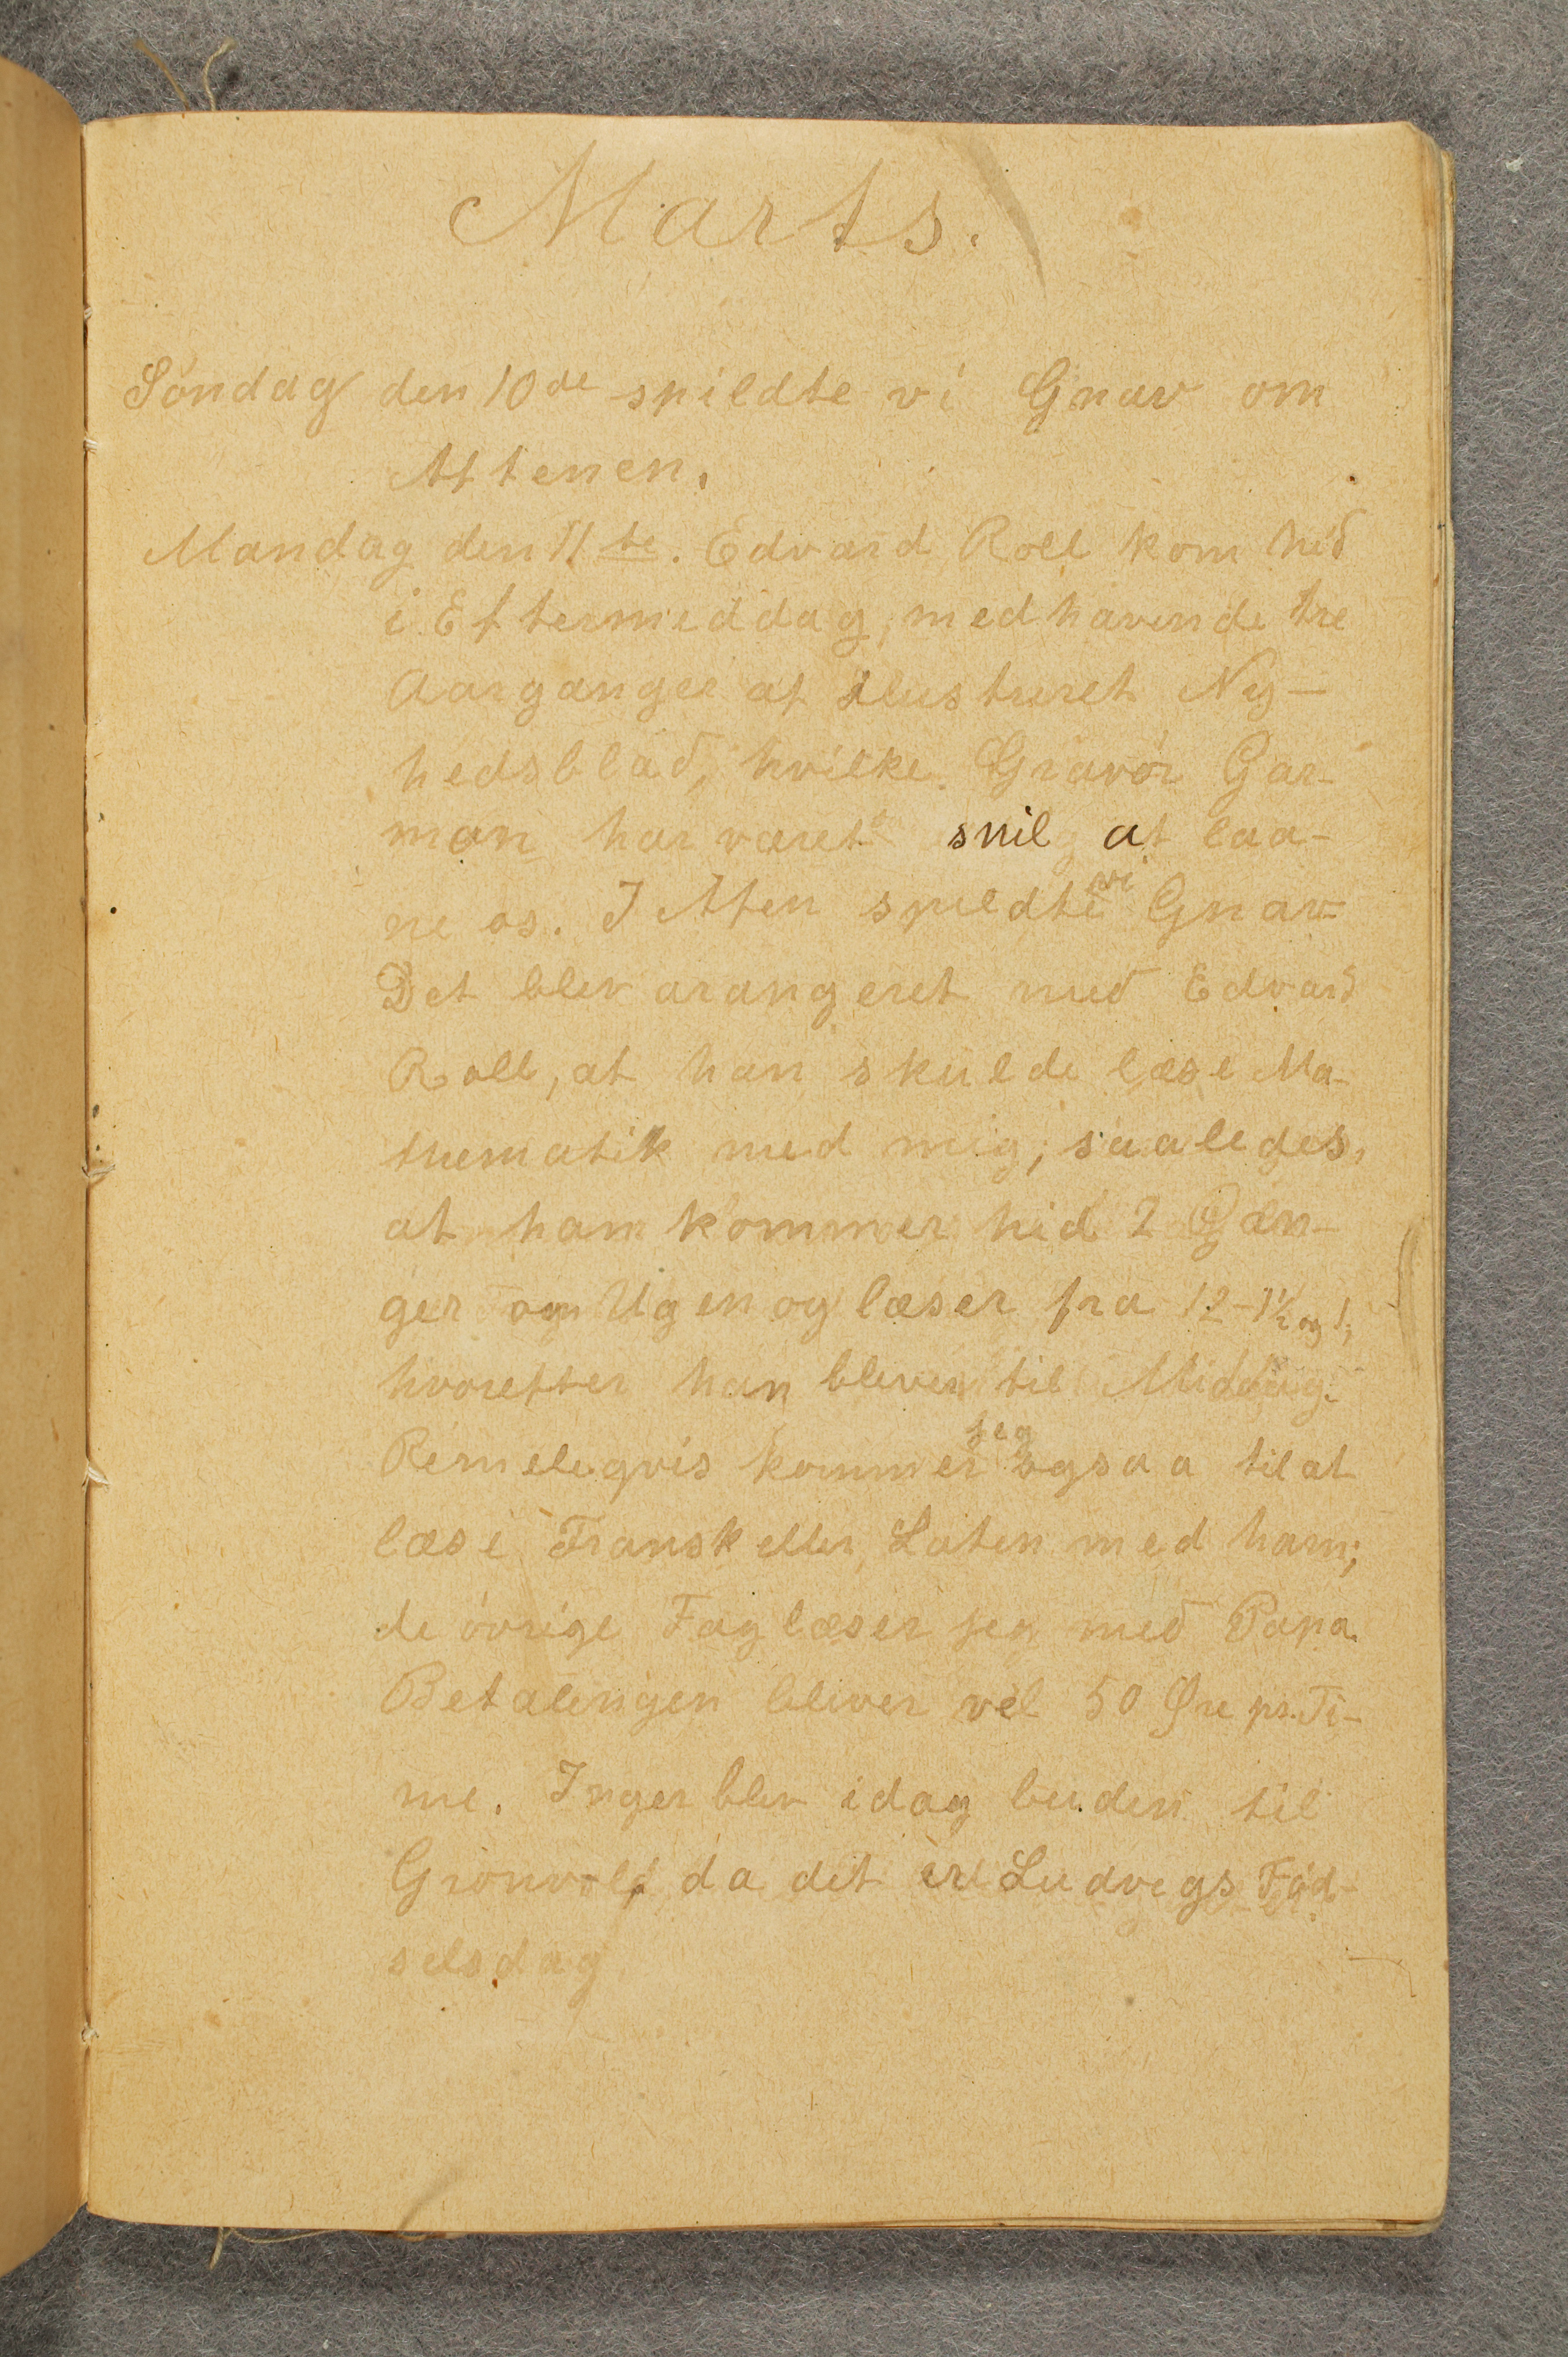 Marts.
Söndag den 10de spildte vi Gnav om
Aftenen.
Mandag den 11te. Edvard Roll kom hid
i Eftermiddag, medhavende tre
Aargange af Illustreret Ny-
hedsblad, hvilke Gravör Gar-
man har været snil at laa-
ne os. I Aften spildte vi Gnav
Det blev arangeret med Edvard
Roll, at han skulde læse Ma-
thematik med mig, saaledes,
at han kommer hid 2 Gan-
ger om Ugen og læser fra 12-1½ og 1,
hvorefter han bliver til Middag.
Rimeligvis kommer jeg ogsaa til at
læse Fransk eller Latin med ham;
de övrige Fag læser jeg med Papa.
Betalingen bliver vel 50 Øre pr. Ti-
me. Inger blev idag buden til
Grönvold, da det er Ludvigs Föd-
selsdag